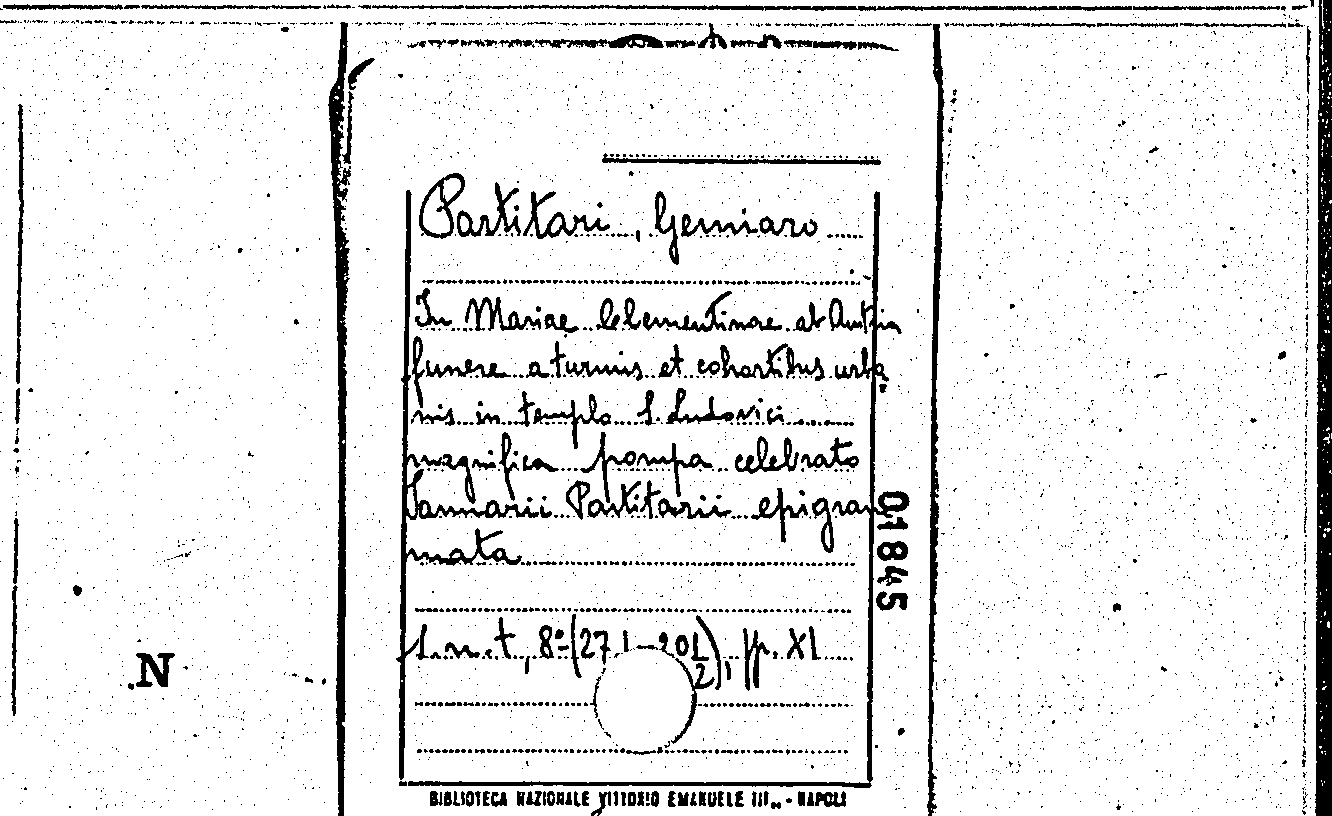 Partitari, Gennaro
In Mariae Clementinae ab Austria
funere a turmis et cohortibus urba-
nis in templo S. Ludovici
magnifica pompa celebrato
Januarii Partitarii epigram
mata
S.n.t, 8º (27 201/2), pp. XI
01845
N
BIBLIOTECA NAZIONALE VITTORIO EMANUELE III„ - NAPOLI